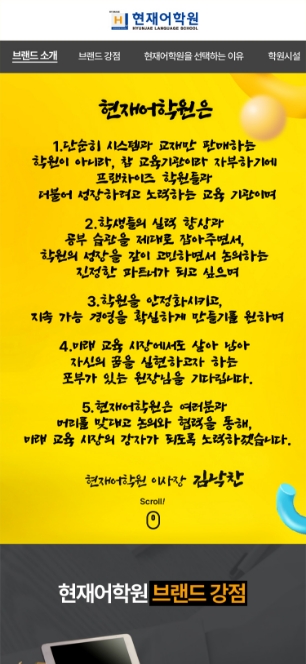 현재어학원
HYUNJAE LANGUAGE SCHOOL
브랜드 소개 브랜드 강점 현재어학원을 선택하는 이유 학원시설
현재어학원은
1.단순히 시스템과 교재만 판매하는
학원이 아니라, 참 교육기관이라 자부하기에
프랜차이즈 학원들과
더불어 성장하려고 노력하는 교육 기관이며
2.학생들의 실력 향상과
공부 습관을 제대로 잡아주면서,
학원의 성장을 같이 고민하면서 논의하는
진정한 파트너가 되고 싶으며
3.학원을 안정화시키고,
지속 가능 경영을 확실하게 만들기를 원하며
4.미래 교육 시장에서도 살아 남아
자신의 꿈을 실현하고자 하는
포부가 있는 원장님을 기다립니다.
5.현재어학원은 여러분과
머리를 맞대고 논의와 협력을 통해,
미래 교육 시장의 강자가 되도록 노력하겠습니다.
현재어학원 이사장 김낙찬
Scroll!
현재어학원 브랜드 강점